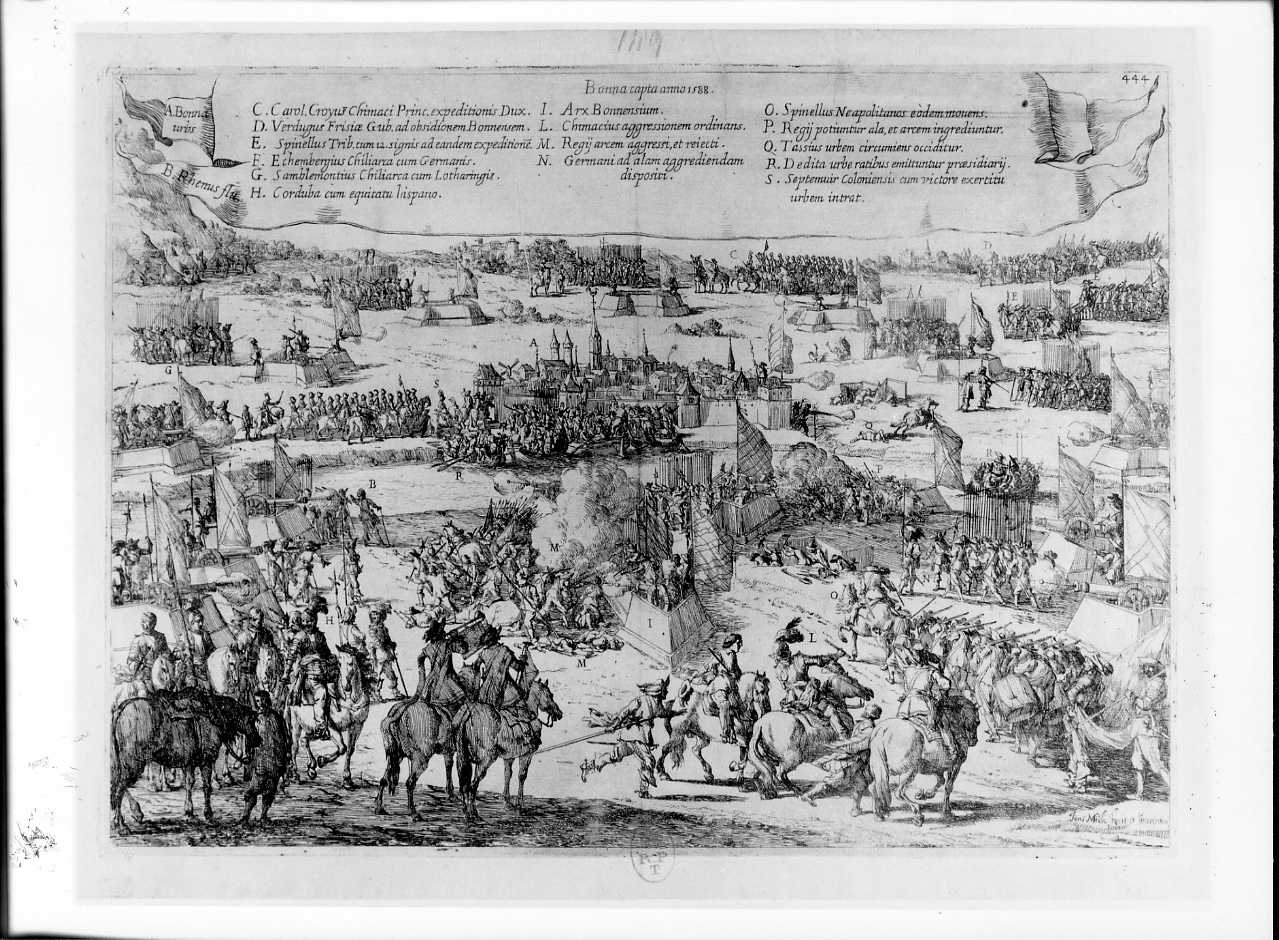 444
Bonna capta anno 1588.
A. Bonna
urbs
B. Rhenus flu.
C. Carol. Croyus Chimaci Princ. expeditionis Dux.
D. Verdugus Frisiæ Gub. ad obsidionem Bonnensem.
E. Spinellus Trib. cum 12. signis ad eandem expeditionē.
F. Echembergius Chiliarca cum Germanis.
G. Samblemontius Chiliarca cum Lotharingis.
H. Corduba cum equitatu hispano.
I. Arx Bonnensium.
L. Chimacius aggressionem ordinans.
M. Regij arcem aggressi, et reiecti.
N. Germani ad alam aggrediendam
dispositi.
O. Spinellus Neapolitanos eòdem mouens.
P. Regij potiuntur ala, et arcem ingrediuntur.
Q. Tassius urbem circumiens occiditur.
R. Dedita urbe ratibus emittuntur præsidiarij.
S. Septemuir Coloniensis cum victore exercitu
urbem intrat.
C
D
E
A
G
S
Q
R
P
B
M
N
O
H
I
L
M
R P
T